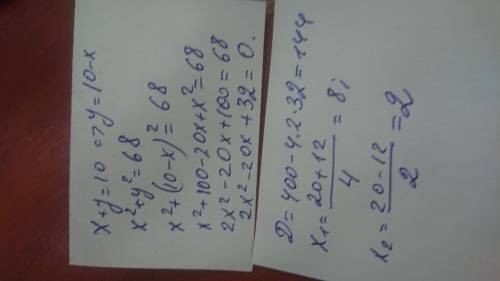 x+y=10 => y=10-x
x²+y²=68
x²+(10-x)²=68
x²+100-20x+x²=68
2x²-20x+100=68
2x²-20x+32=0.
D=400-4·2·32=144
x₁=(20+12)/4=8;
x₂=(20-12)/2=2